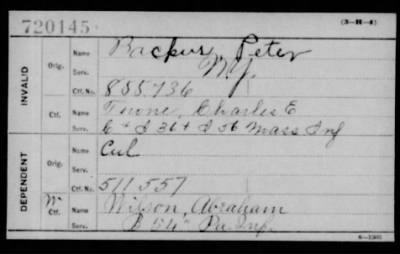 720145
(3-H-4)
INVALID
Orig.
Name Backus Peter
Serv. N.Y.
Ctf. No. 855.736
Ctf.
Name Towne, Charles E
Serv. 6" & 36 & 56 Mass Inf
DEPENDENT
Orig.
Name Cul
Serv.
Ctf. No. 511557
W
Ctf.
Name Wilson, Abraham
Serv. B 54" Pa. Inf.